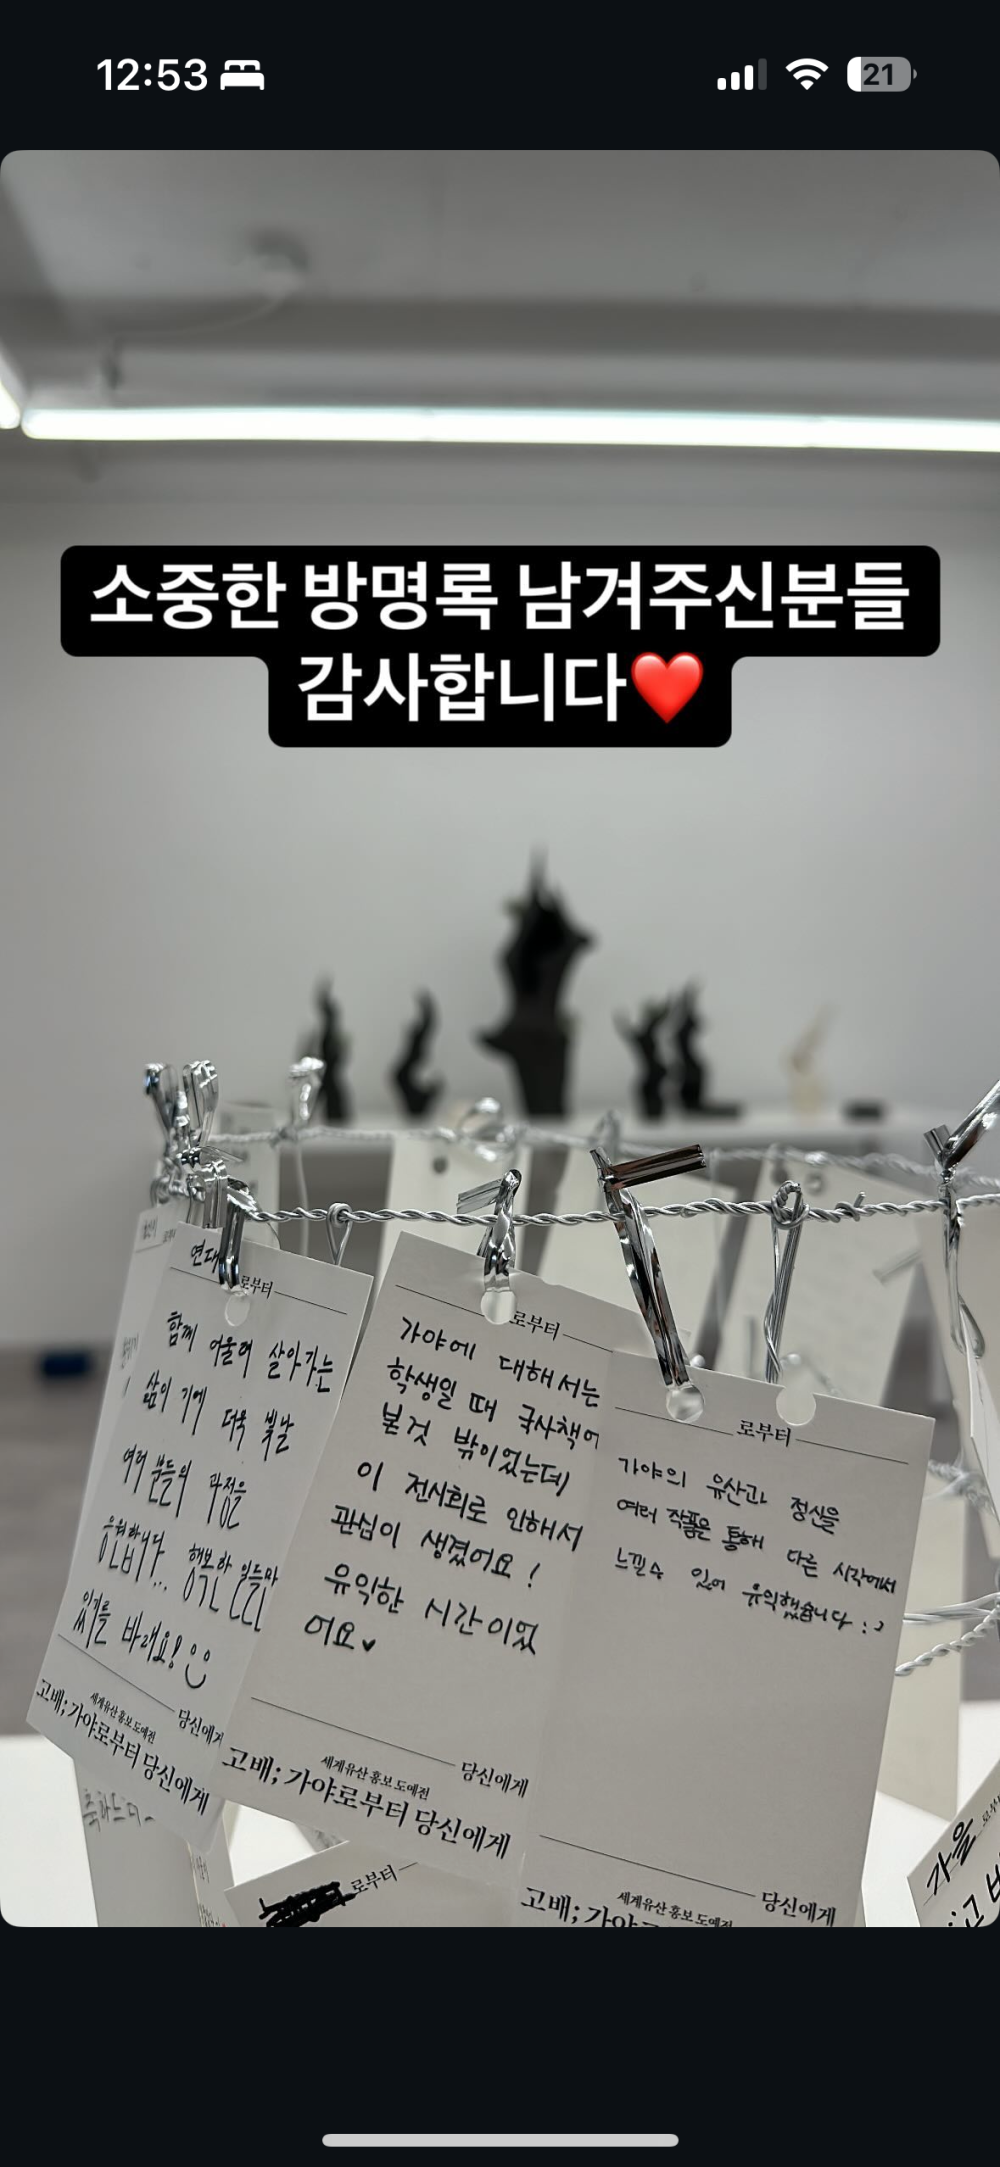 12:53
21
소중한 방명록 남겨주신분들
감사합니다❤️
연대
로부터
함께 어울려 살아가는
삶이 기에 더욱 빛날
여러 분들의 과정을
응원합니다... 행복한 일들만
있기를 바래요!
당신에게
세계유산 홍보 도예전
고배; 가야로부터 당신에게
로부터
가야에 대해서는
학생일 때 국사책에
본것 밖이었는데
이 전시회로 인해서
관심이 생겼어요!
유익한 시간이었
어요♥
당신에게
세계유산 홍보 도예전
고배; 가야로부터 당신에게
로부터
가야의 유산과 정신을
여러 작품을 통해 다른 시각에서
느낄수 있어 유익했습니다 :)
당신에게
세계유산 홍보 도예전
고배; 가야로
로부터
가을